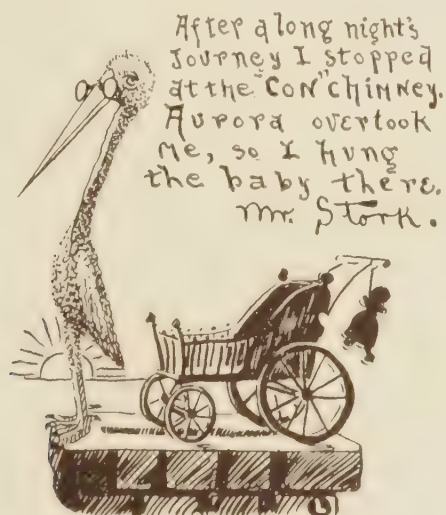 After a long night's
Journey I stopped
at the "CON" chimney.
Aurora overtook
me, so I hung
the baby there.
Mr. Stork.
L